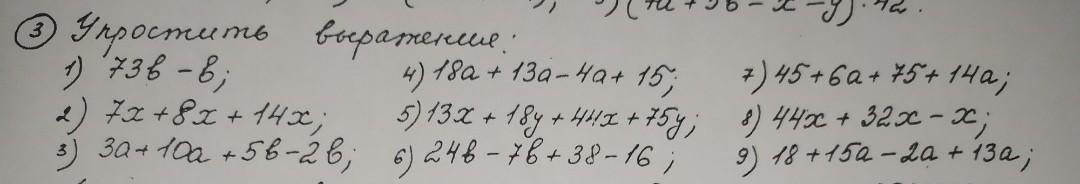 3) (7a + 5b - x - y) · 42.
③ Упростить выражение:
1) 73b - b; 4) 18a + 13a - 4a + 15; 7) 45 + 6a + 75 + 14a;
2) 7x + 8x + 14x; 5) 13x + 18y + 44x + 75y; 8) 44x + 32x - x;
3) 3a + 10a + 5b - 2b; 6) 24b - 7b + 38 - 16; 9) 18 + 15a - 2a + 13a;